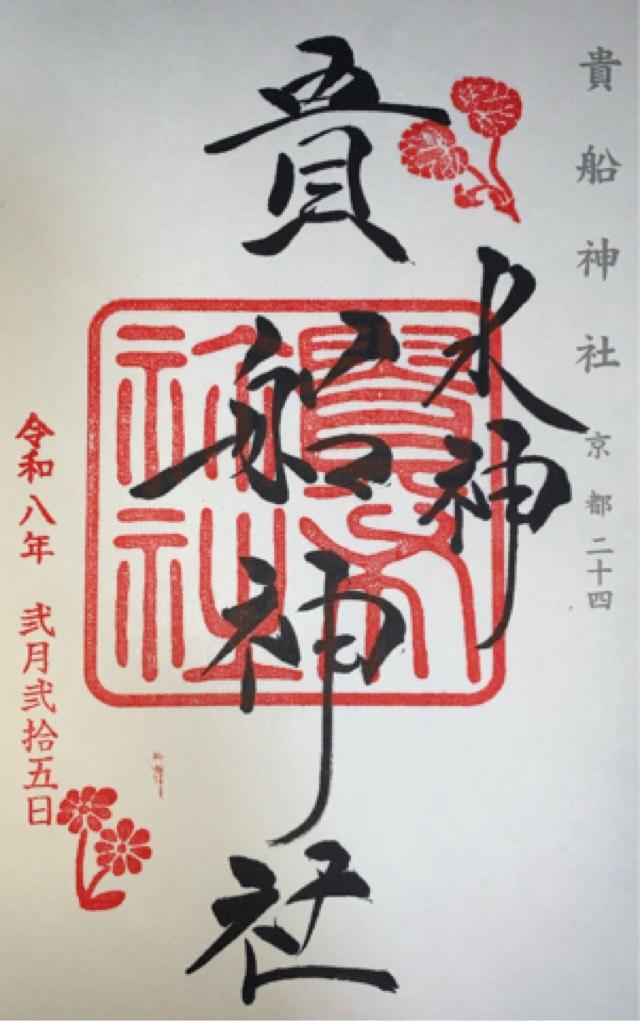 貴船神社 京都二十四
水神
貴船神社
令和八年 弐月弐拾五日